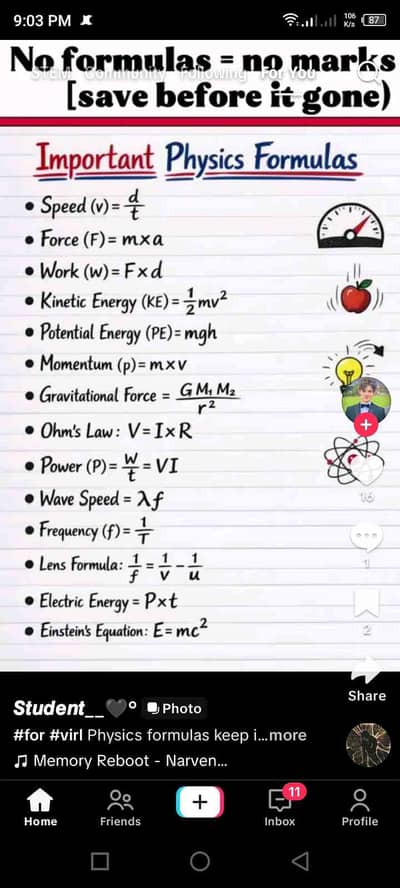 9:03 PM
106 K/s 87
No formulas = no marks
STEM Community Following For You
[save before it gone)
Important Physics Formulas
• Speed (v) = d/t
• Force (F) = m x a
• Work (w) = F x d
• Kinetic Energy (KE) = 1/2 mv²
• Potential Energy (PE) = mgh
• Momentum (p) = m x v
• Gravitational Force = G M₁ M₂ / r²
• Ohm's Law : V = I x R
• Power (P) = W/t = VI
• Wave Speed = λf
• Frequency (f) = 1/T
• Lens Formula: 1/f = 1/v - 1/u
• Electric Energy = P x t
• Einstein's Equation: E = mc²
16
1
2
Share
Student__🖤° Photo
#for #virl Physics formulas keep i...more
♫ Memory Reboot - Narven...
11
Home Friends Inbox Profile